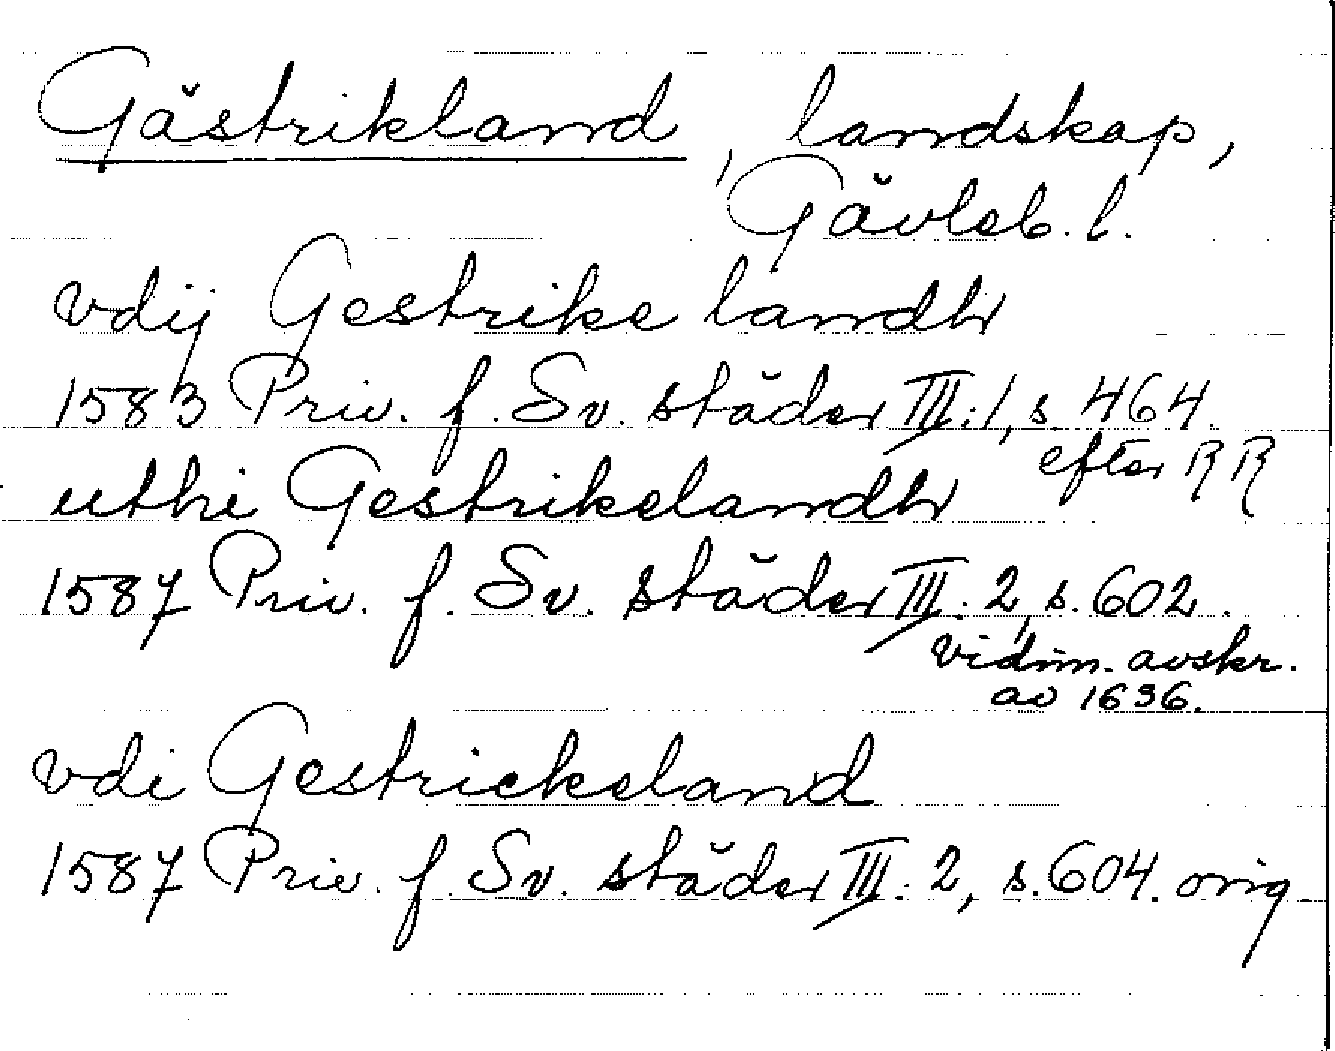 Gästrikland, landskap,
Gävleb. l.
vdij Gestrike landh
1583 Priv. f. Sv. städer III:1, s. 464.
efter RR
uthi Gestrikelandh
1587 Priv. f. Sv. städer III:2, s. 602.
vidim. avskr.
av 1636.
vdi Gestrickeland
1587 Priv. f. Sv. städer III:2, s. 604. orig